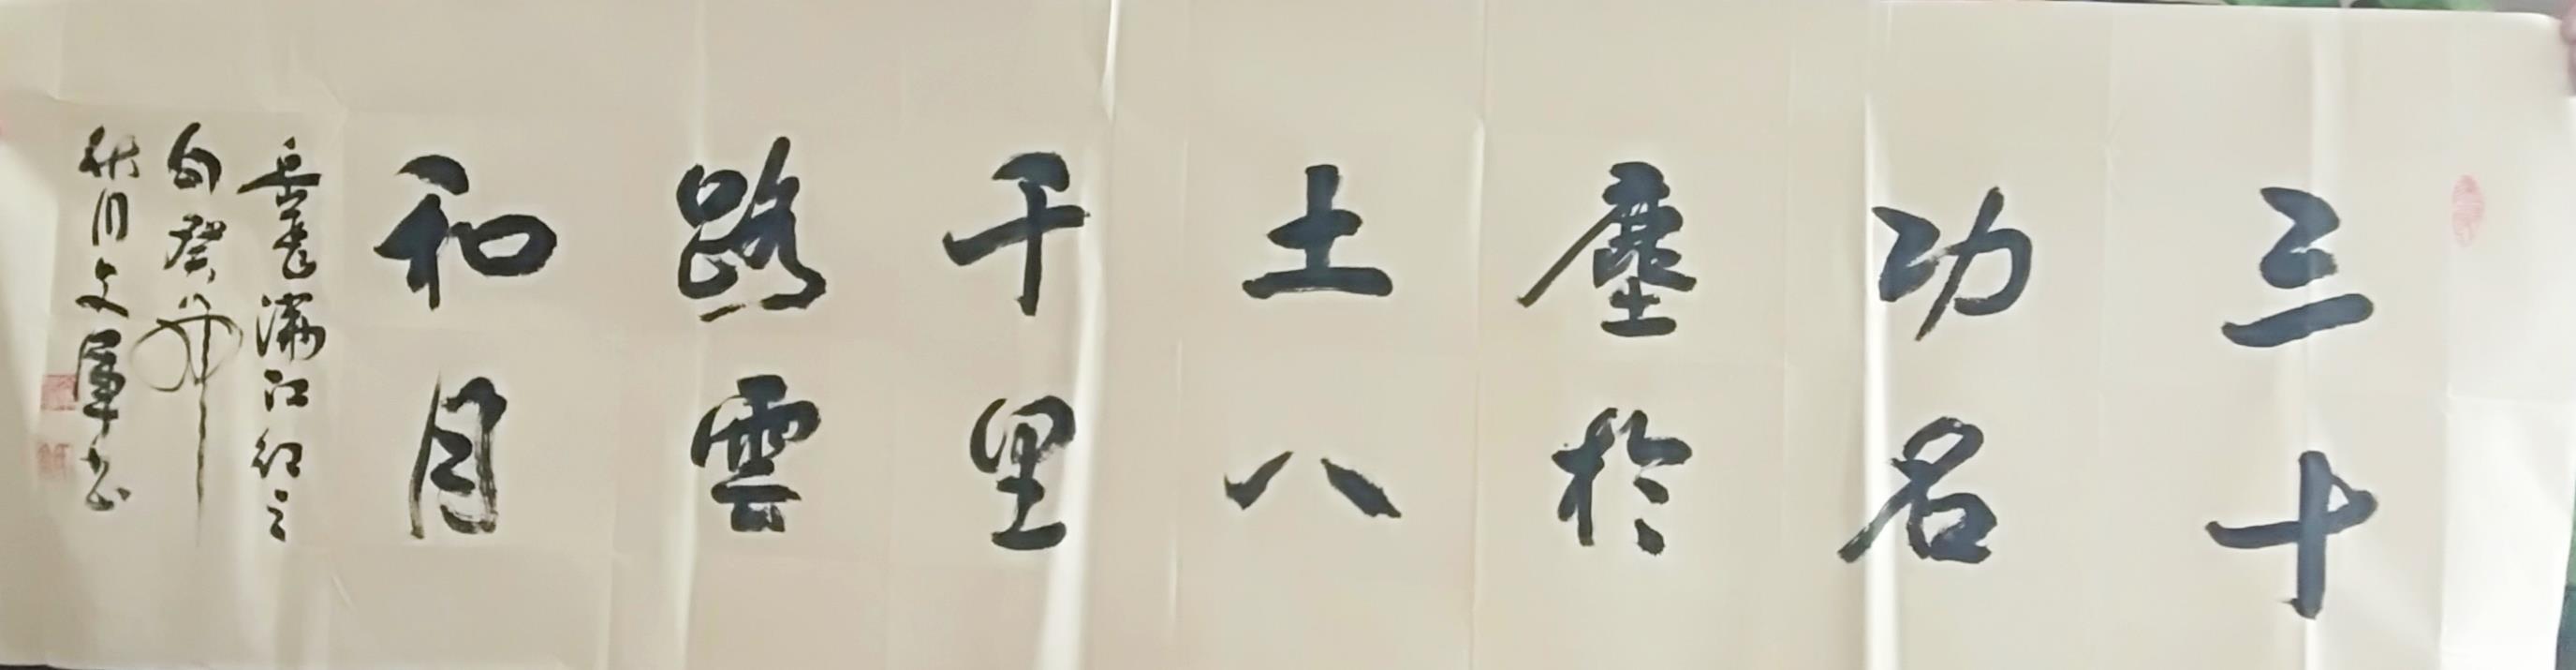 三十
功名
塵於
土八
千里
路雲
和月
岳飛滿江紅之
句癸卯
秋月文军书